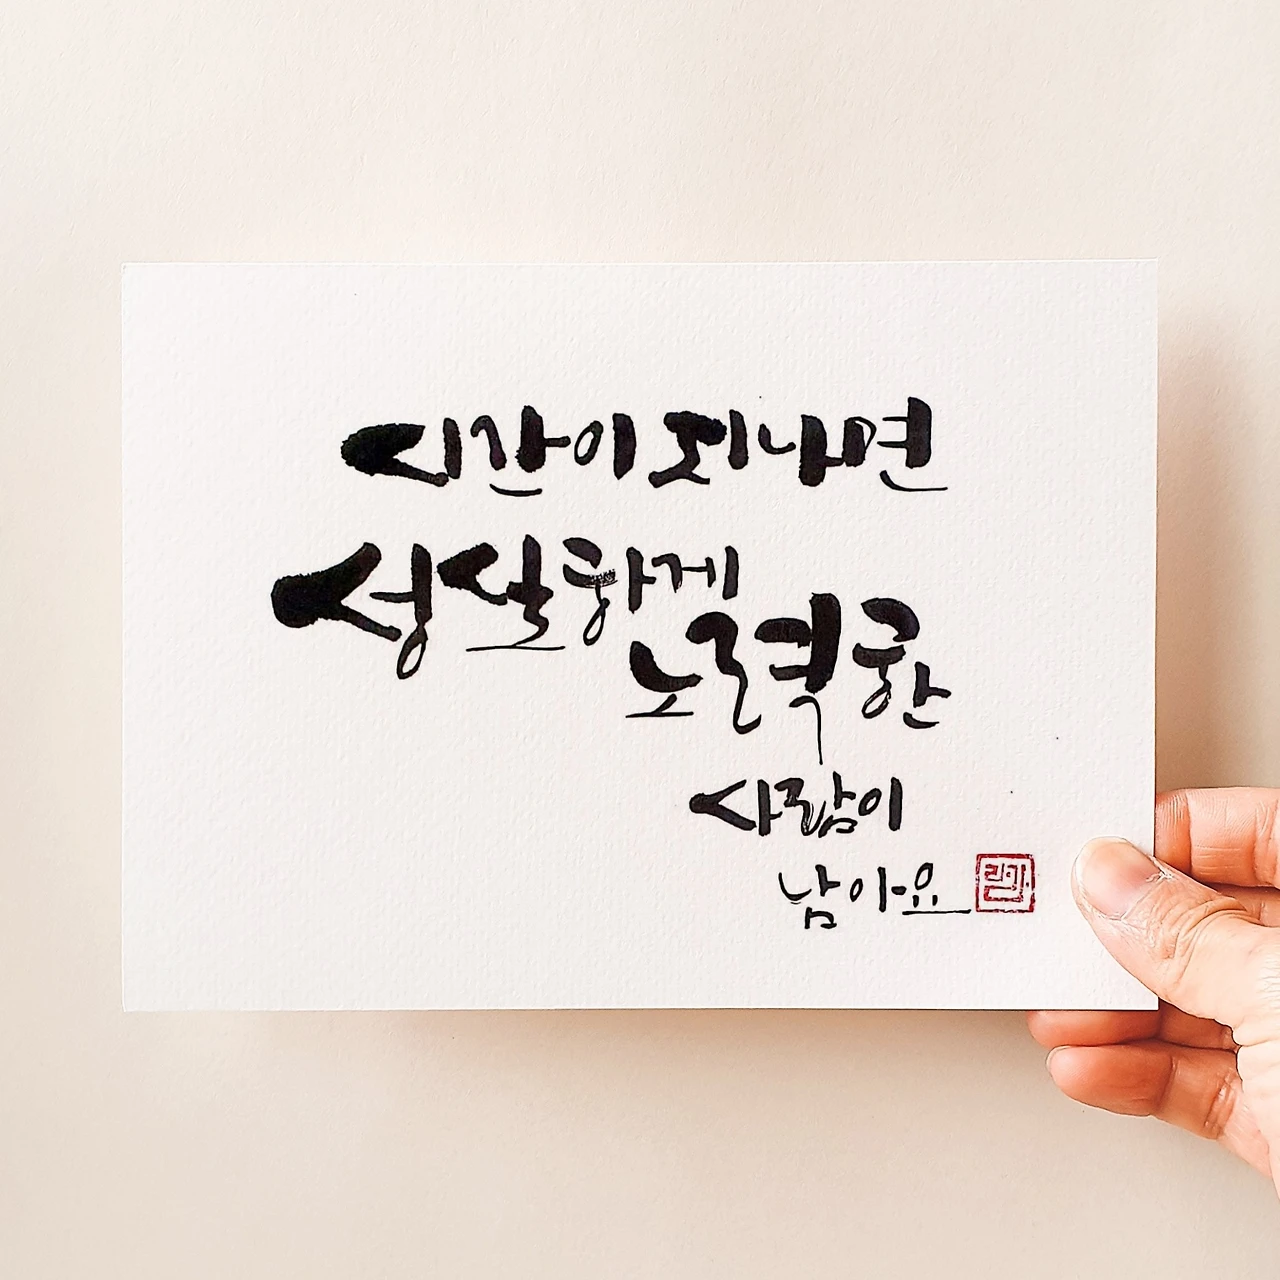 시간이 지나면
성실하게
노력한
사람이
남아요